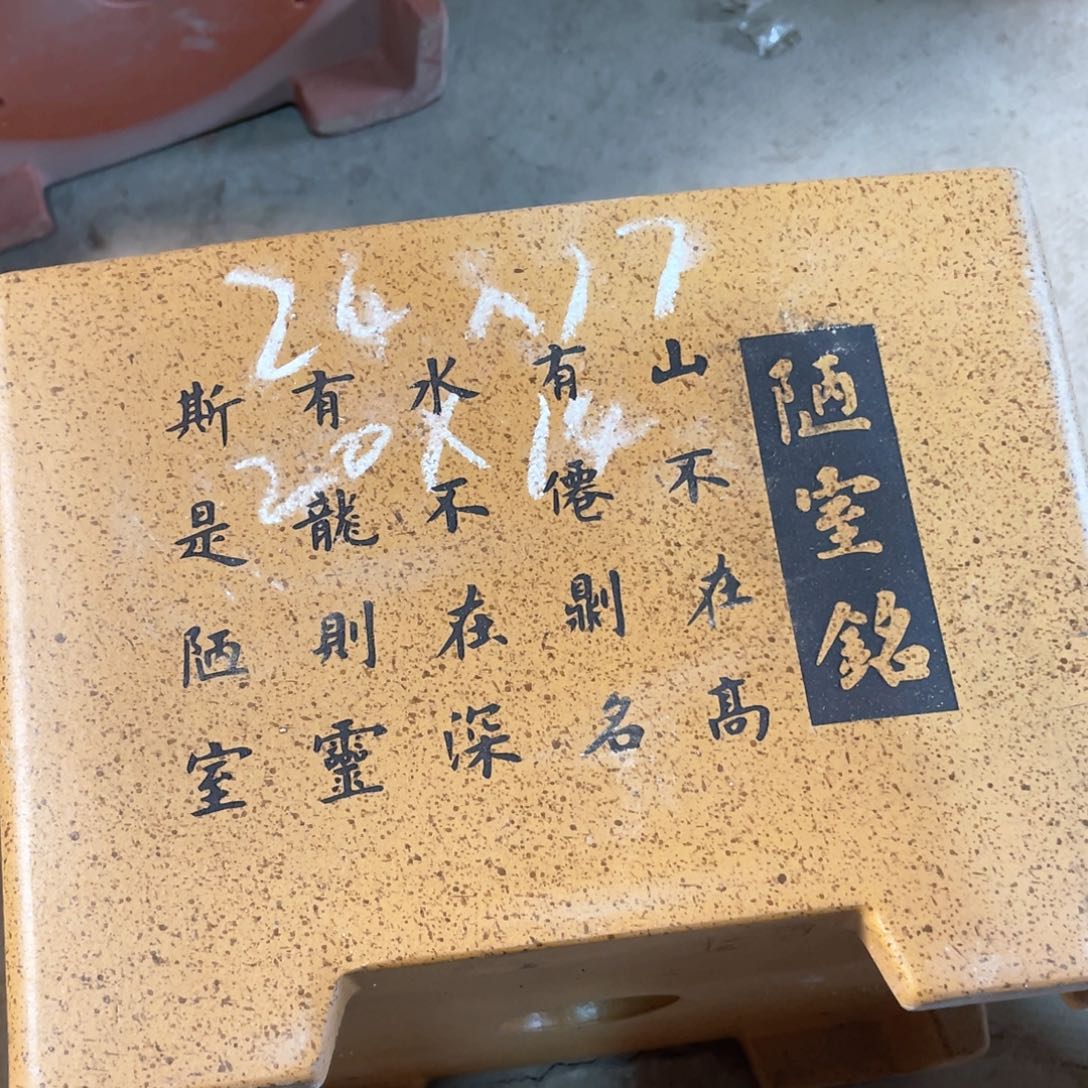 24x17
20x14
陋室銘
山不在高
有僊𠟭名
水不在深
有龍則靈
斯是陋室